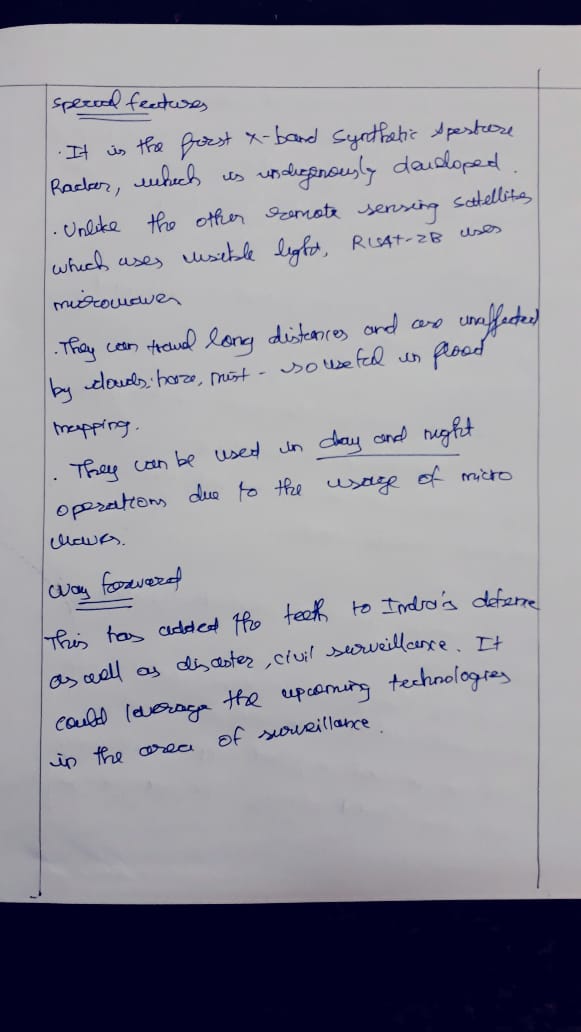 Special features
. It is the first X-band Synthetic Aperture
Radar, which is indigenously developed.
. Unlike the other remote sensing satellites
which uses visible light, RISAT-2B uses
microwaves
. They can travel long distances and are unaffected
by clouds, haze, mist - so useful in flood
mapping.
. They can be used in day and night
operations due to the usage of micro
waves.
Way forward
This has added the teeth to India's defense
as well as disaster, civil surveillance. It
could leverage the upcoming technologies
in the area of surveillance.